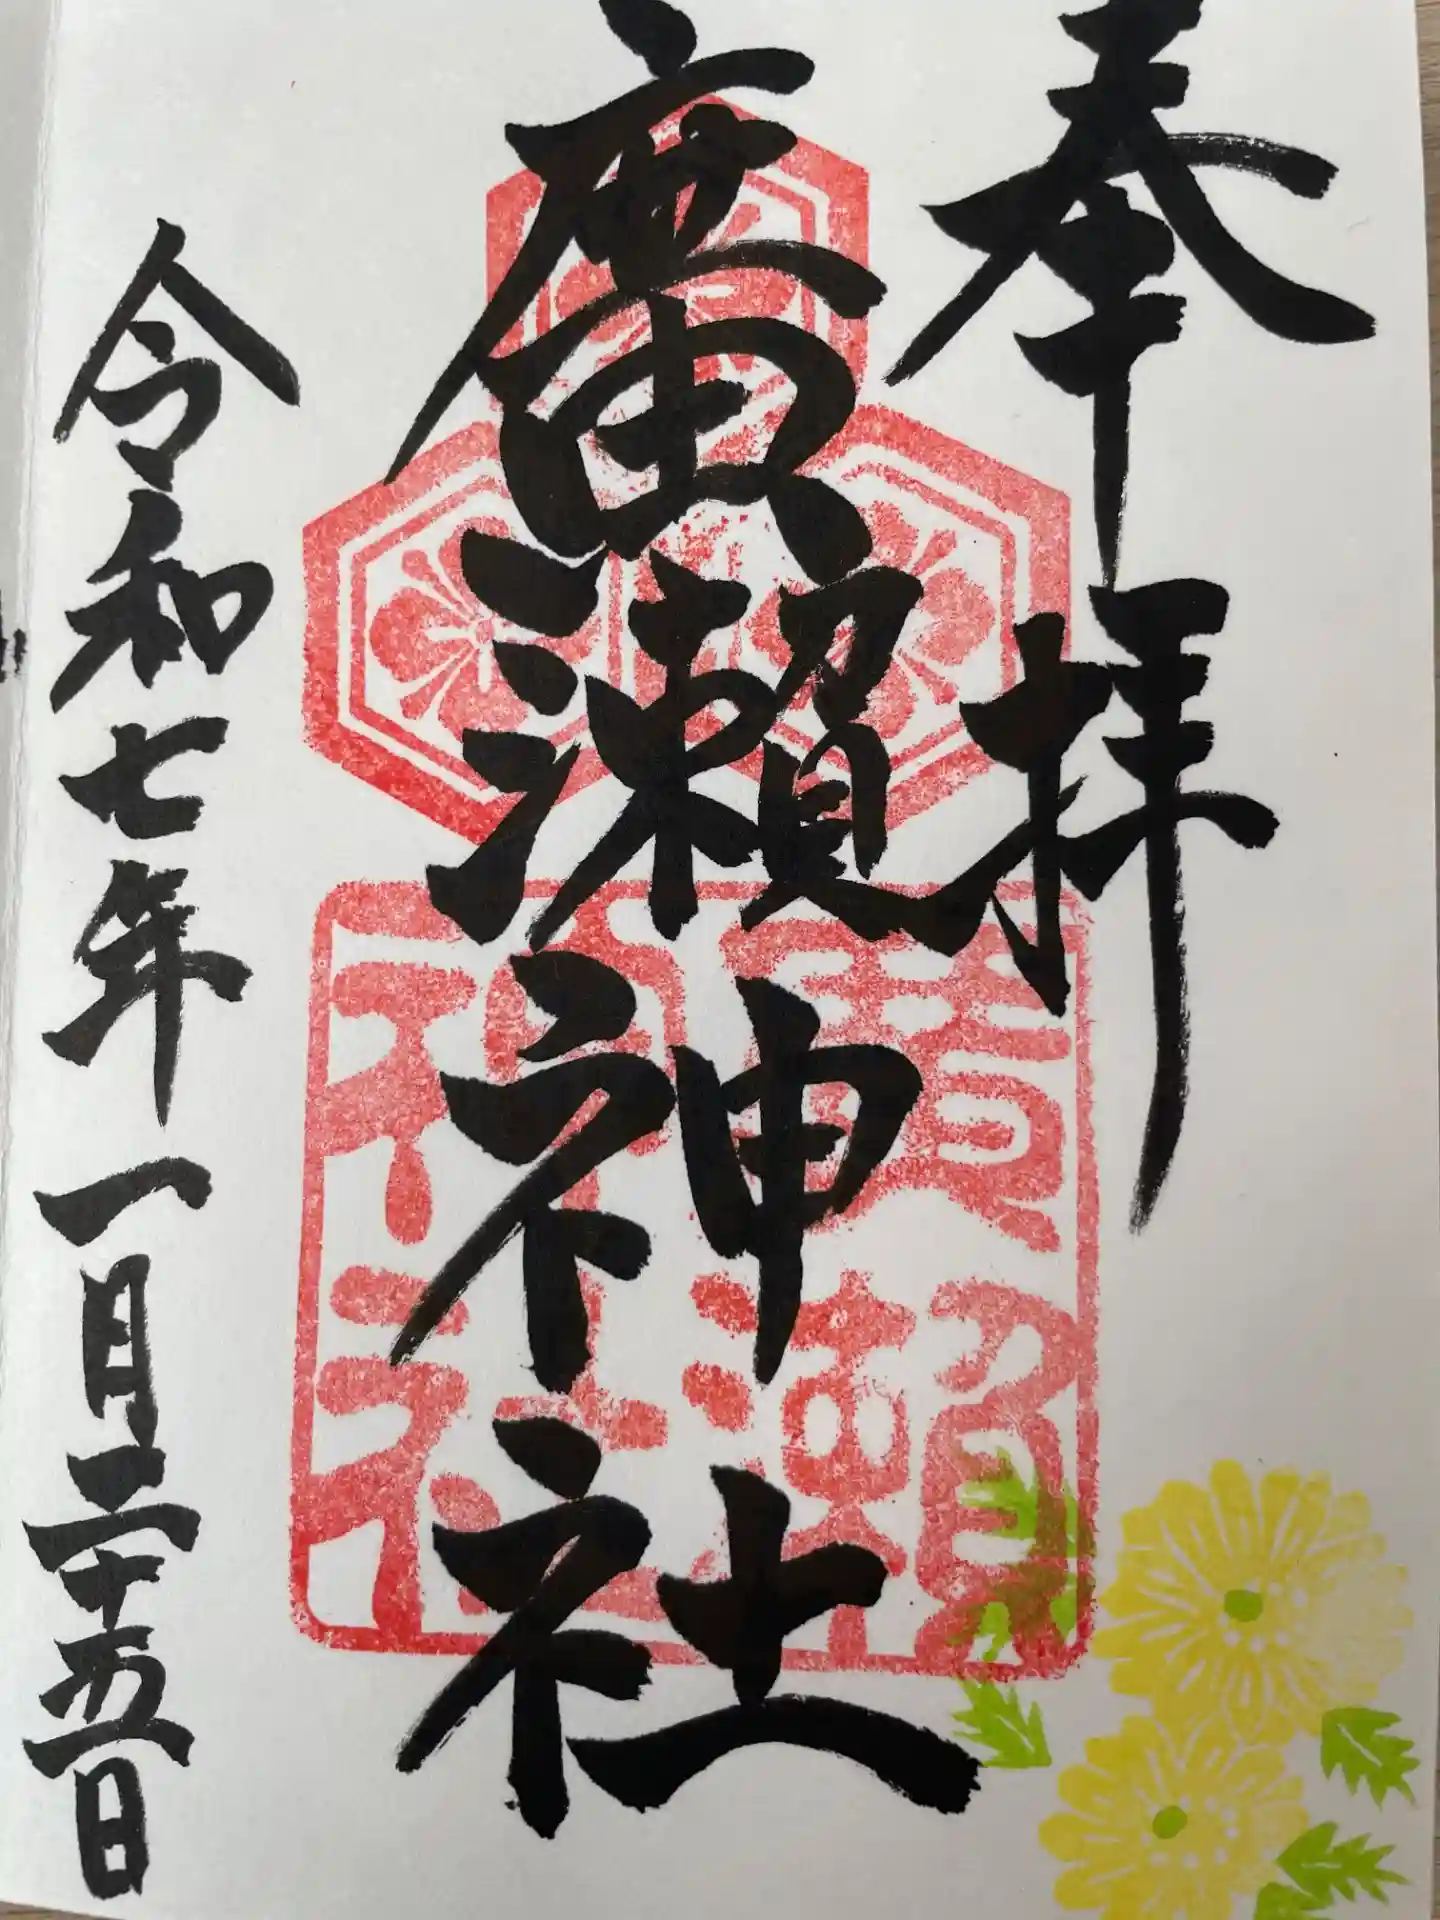 奉拝
廣瀬神社
廣瀬
神社
令和七年一月二十五日